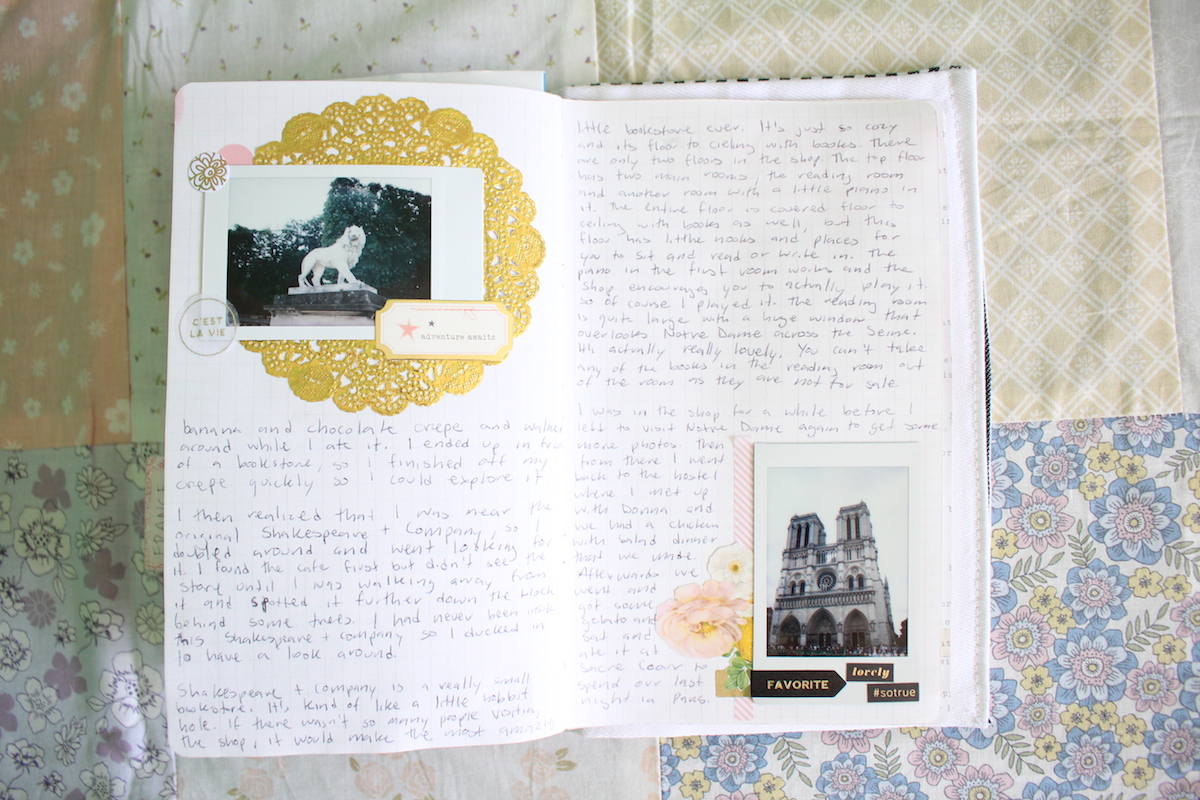 C'EST
LA VIE
adventure awaits
banana and chocolate crepe and walked
around while I ate it. I ended up in front
of a bookstore, so I finished off my
crepe quickly so I could explore it
I then realized that I was near the
original Shakespeare + Company, so I
doubled around and went looking for
it. I found the cafe first but didn't see the
store until I was walking away from
it and spotted it further down the block
behind some trees. I had never been inside
this Shakespeare + company so I ducked in
to have a look around.
Shakespeare + company is a really small
bookstore. It's kind of like a little hobbit
hole. if there wasn't so many people visiting
the shop, it would make the most amazing
little bookstore ever. It's just so cozy
and its floor to cieling with books. There
are only two floors in the shop. The top floor
has two main rooms, the reading room
and another room with a little piano in
it. The entire floor is covered floor to
ceiling with books as well, but this
floor has little nooks and places for
you to sit and read or write in. The
piano in the first room works and the
shop encourages you to actually play it.
so of course I played it. The reading room
is quite large with a huge window that
overlooks Notre Dame across the Seine.
It's actually really lovely. You can't take
any of the books in the reading room out
of the room as they are not for sale.
I was in the shop for a while before I
left to visit Notre Dame again to get some
more photos. Then
from there I went
back to the hostel
where I met up
with Donna and
we had a chicken
with salad dinner
that we made.
Afterwards we
went and
got some
gelato and
sat and
ate it at
Sacre Coeur to
spend our last
night in Paris.
FAVORITE
lovely
#sotrue